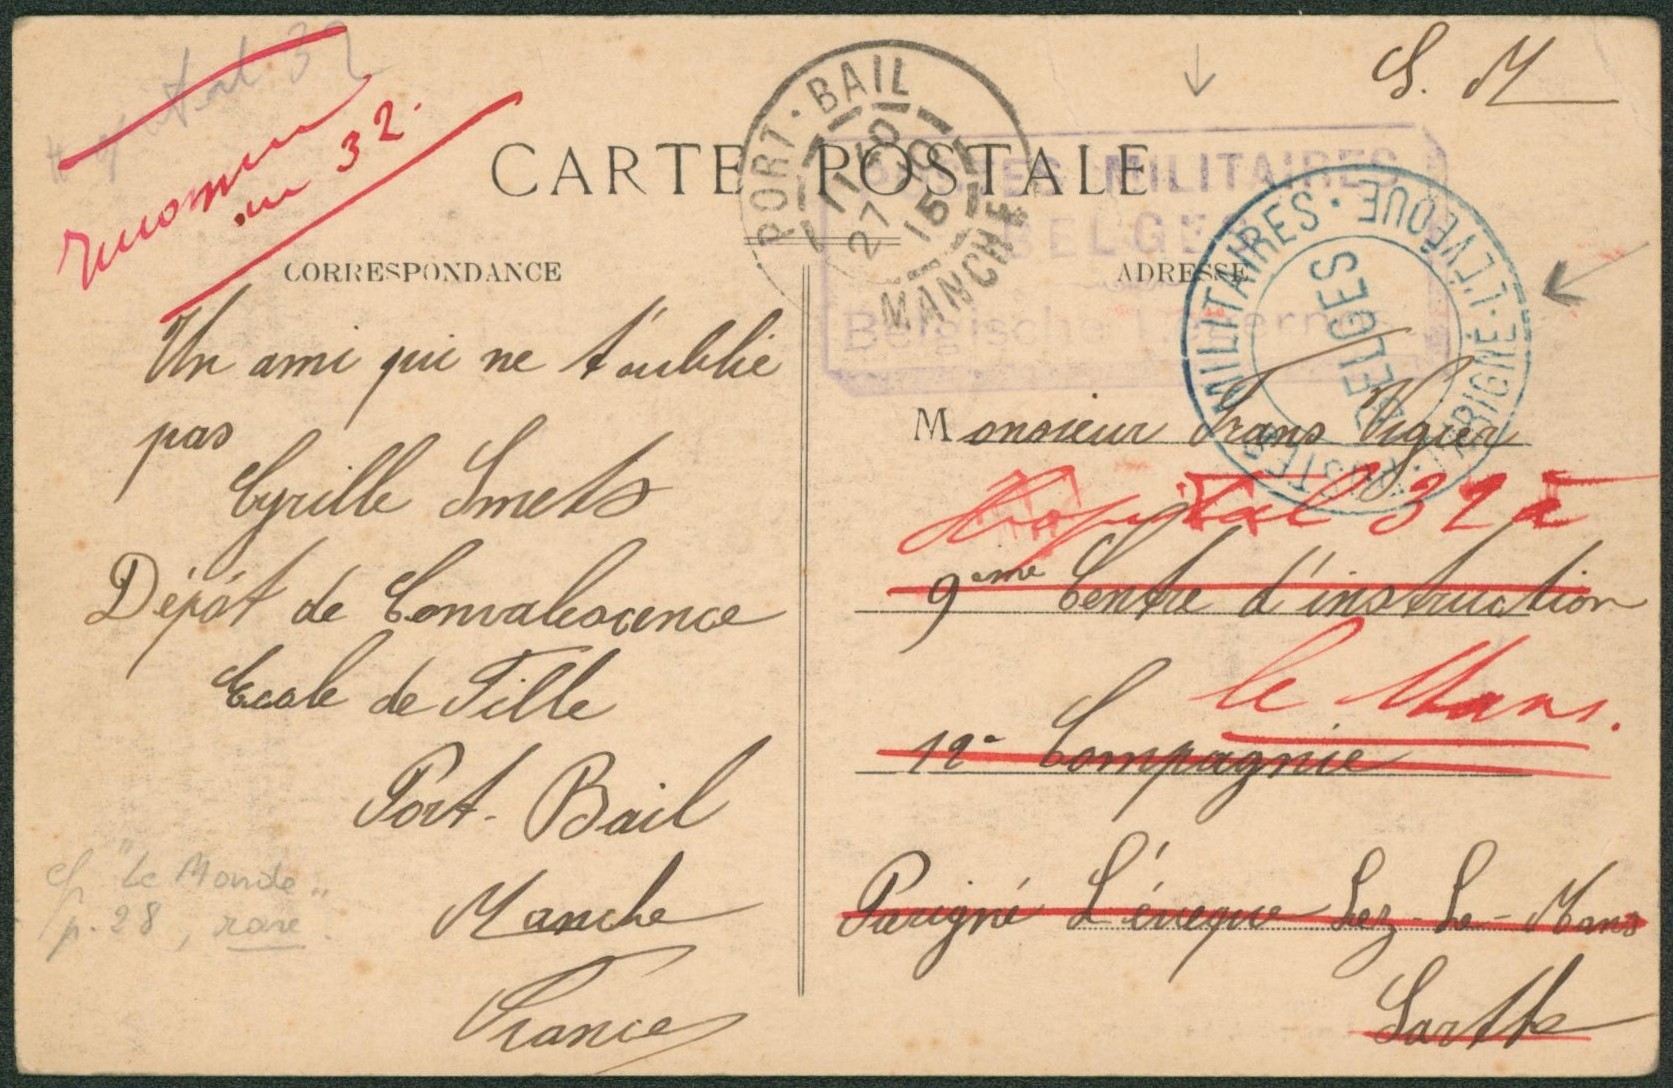 S. M
Hopital 32
inconnu
au 32.
CARTE POSTALE
PORT-BAIL
11 50
27 - 9 15
MANCHE
POSTES MILITAIRES
BELGES
Belgische
POSTES MILITAIRES · PARIGNÉ · L'ÉVÊQUE ·
BELGES
CORRESPONDANCE
ADRESSE
Un ami qui ne t'oublie
pas
Cyrille Smets
Dépôt de Convalescence
Ecole de Fille
Port-Bail
Manche
France
cfr "Le Monde"
p. 28, rare
Monsieur Frans Vigier
Hopital 32
9ème Centre d'instruction
le Mans.
12e Compagnie
Parigné L'éveque Lez-Le-Mans
Sarthe